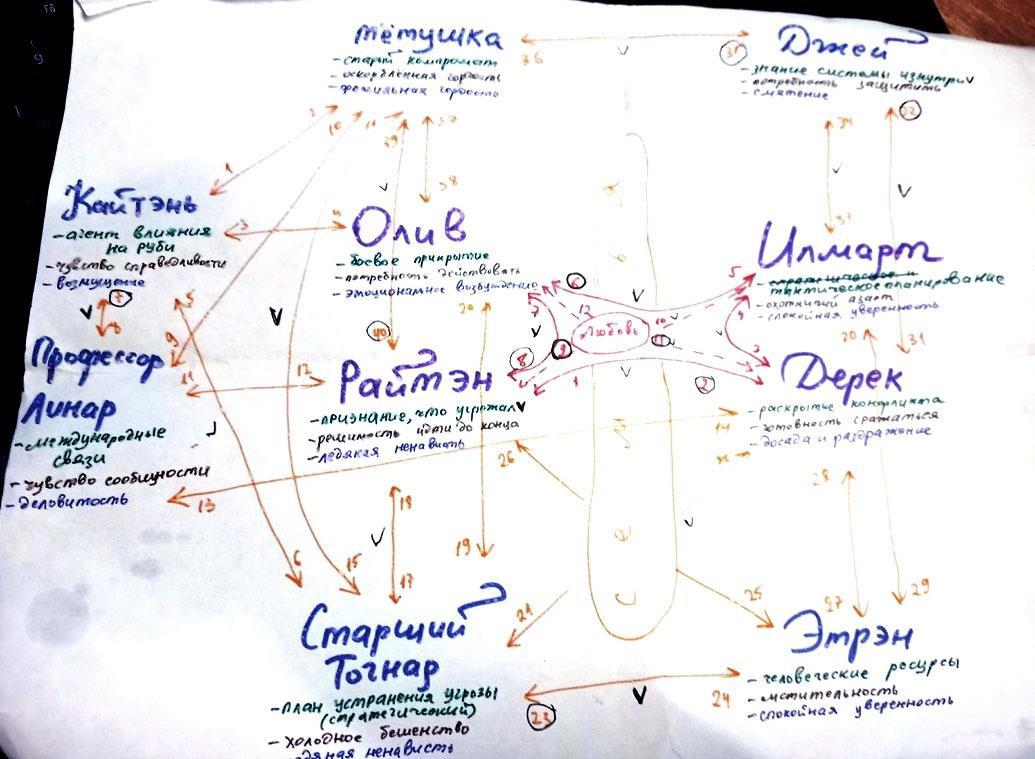 Тётушка
- старый компромат
- оскорблённая гордость
- фамильная гордость
Джей
- знание системы изнутри
- потребность защитить
- смятение
36
35
2
10
11
39
37
34
32
1
38
33
Кайтэнь
- агент влияния
на Руби
- чувство справедливости
- возмущение
3
4
Олив
- боевое прикрытие
- потребность действовать
- эмоциональное возбуждение
Илмарт
тактическое планирование
- охотничий азарт
- спокойная уверенность
5
6
7
8
9
12
10
11
Любовь
40
20
30
31
Профессор
Линар
- международные
связи
- чувство сообщности
- деловитость
11
12
13
Райтэн
- признание, что угрожал
- решимость идти до конца
- ледяная ненависть
8
1
2
Дерек
- раскрытие конфликта
- готовность сражаться
- досада и раздражение
14
26
28
18
19
17
6
15
21
25
27
29
Старший
Тогнар
- план устранения угрозы
(стратегический)
- холодное бешенство
ненависть
23
24
Этрэн
- человеческие ресурсы
- мстительность
- спокойная уверенность